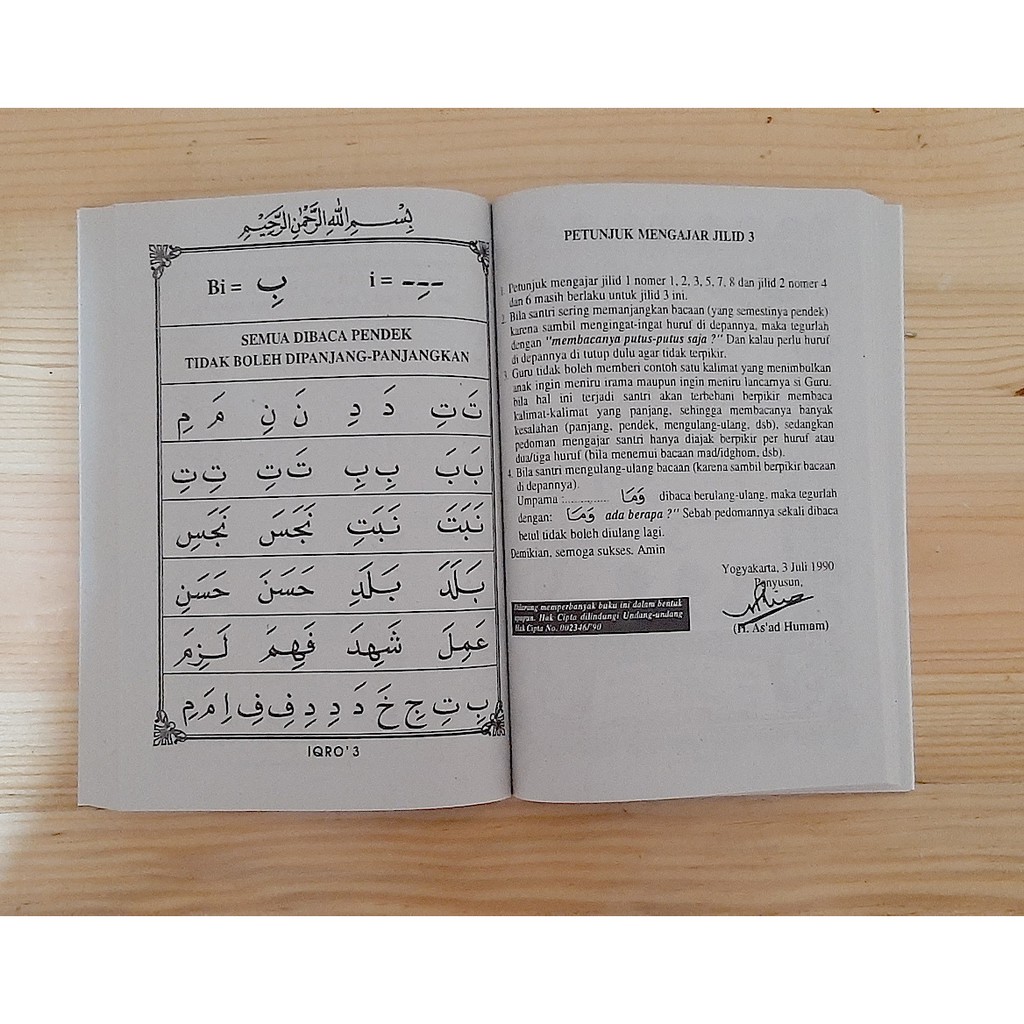 بِسْمِ اللهِ الرَّحْمٰنِ الرَّحِيْمِ
Bi = بِ i = ---ِ
SEMUA DIBACA PENDEK
TIDAK BOLEH DIPANJANG-PANJANGKAN
تَ تِ دَ دِ نَ نِ مَ مِ
بَ بَ بِ بِ تَ تِ تِ تِ
نَبَتَ نَبَتِ نَجَسَ نَجَسِ
بَلَدَ بَلَدِ حَسَنَ حَسَنِ
عَمِلَ شَهِدَ فَهِمَ لَزِمَ
بِ تِ جِ خَ دَ دِ دِ فِ فِ اِ مَ مِ
IQRO' 3
PETUNJUK MENGAJAR JILID 3
1. Petunjuk mengajar jilid 1 nomer 1, 2, 3, 5, 7, 8 dan jilid 2 nomer 4
dan 6 masih berlaku untuk jilid 3 ini.
2. Bila santri sering memanjangkan bacaan (yang semestinya pendek)
karena sambil mengingat-ingat huruf di depannya, maka tegurlah
dengan "membacanya putus-putus saja ?" Dan kalau perlu huruf
di depannya di tutup dulu agar tidak terpikir.
3. Guru tidak boleh memberi contoh satu kalimat yang menimbulkan
anak ingin meniru irama maupun ingin meniru lancarnya si Guru.
bila hal ini terjadi santri akan terbebani berpikir membaca
kalimat-kalimat yang panjang, sehingga membacanya banyak
kesalahan (panjang, pendek, mengulang-ulang, dsb), sedangkan
pedoman mengajar santri hanya diajak berpikir per huruf atau
dua/tiga huruf (bila menemui bacaan mad/idghom, dsb).
4. Bila santri mengulang-ulang bacaan (karena sambil berpikir bacaan
di depannya).
Umpama :.............. وَمَا dibaca berulang-ulang, maka tegurlah
dengan: وَمَا ada berapa ?" Sebab pedomannya sekali dibaca
betul tidak boleh diulang lagi.
Demikian, semoga sukses. Amin
Yogyakarta, 3 Juli 1990
Penyusun,
(H. As'ad Humam)
Dilarang memperbanyak buku ini dalam bentuk
apapun. Hak Cipta dilindungi Undang-undang
Hak Cipta No. 002346/'90